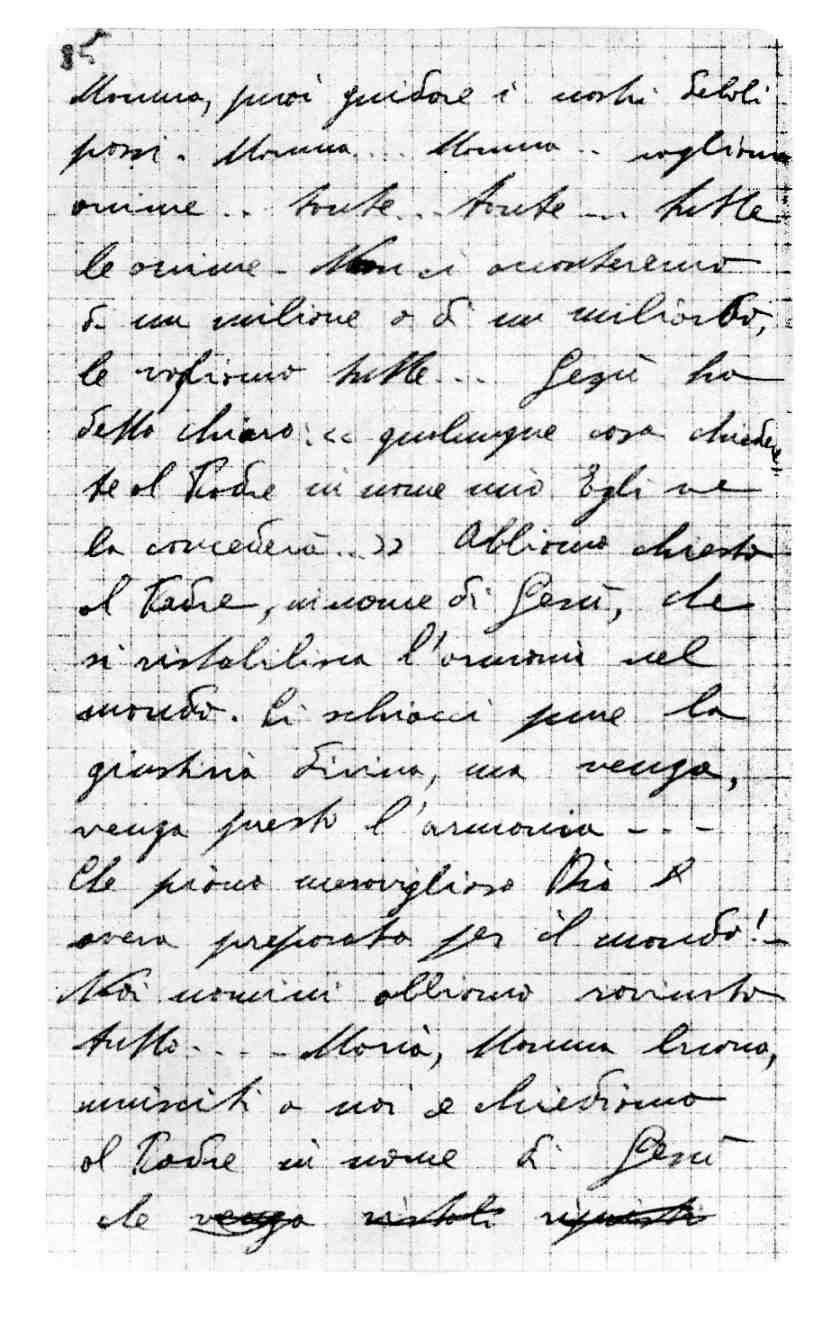 85
Mamma, puoi guidare i nostri deboli
passi. Mamma... Mamma.. vogliamo
anime.. tante... tante... tutte
le anime - Non ci accontenteremo
di un milione o di un miliardo,
le vogliamo tutte... Gesù ha
detto chiaro: << qualunque cosa chiedere-
te al Padre in nome mio Egli ve
la concederà..>> Abbiamo chiesto
al Padre, in nome di Gesù, che
si ristabilisca l'armonia nel
mondo. Ci schiacci pure la
giustizia divina, ma venga,
venga presto l'armonia - - -
Che piano meraviglioso Dio
aveva preparato per il mondo! -
Noi uomini abbiamo rovinato
tutto. - . - Maria, Mamma buona,
unisciti a noi e chiediamo
al Padre in nome di Gesù
che venga ristabi